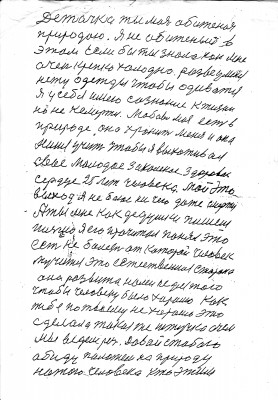 Деточка ты моя обиженая
природою. Я не обиженый в
этом если бы ты знала как мне
очен крепко холодно, разве у меня
нету одежды чтобы одеватся
Я у себя имею сознание к
но не к смерти. Любовь моя есть в
природе, она хранит меня и она
учит чтобы я выхоживал
свое молодое закаленое здоровое
сердце 25 лет человека. Мой это
выход я не боюсь ни чего даже смерти
А ты мне как дедушки пишеш
письмо я его прочитал понял это
есть не болезнь от которой человек
мучится это естественная сторона
она развита нами не для того
чтобы человеку было хорошо как
тебе по твоему не хорошо это
сделала такая то штучка о чем
мы ведем реч. Давай с тобою
обиду положим на природу
на того человека кто этим